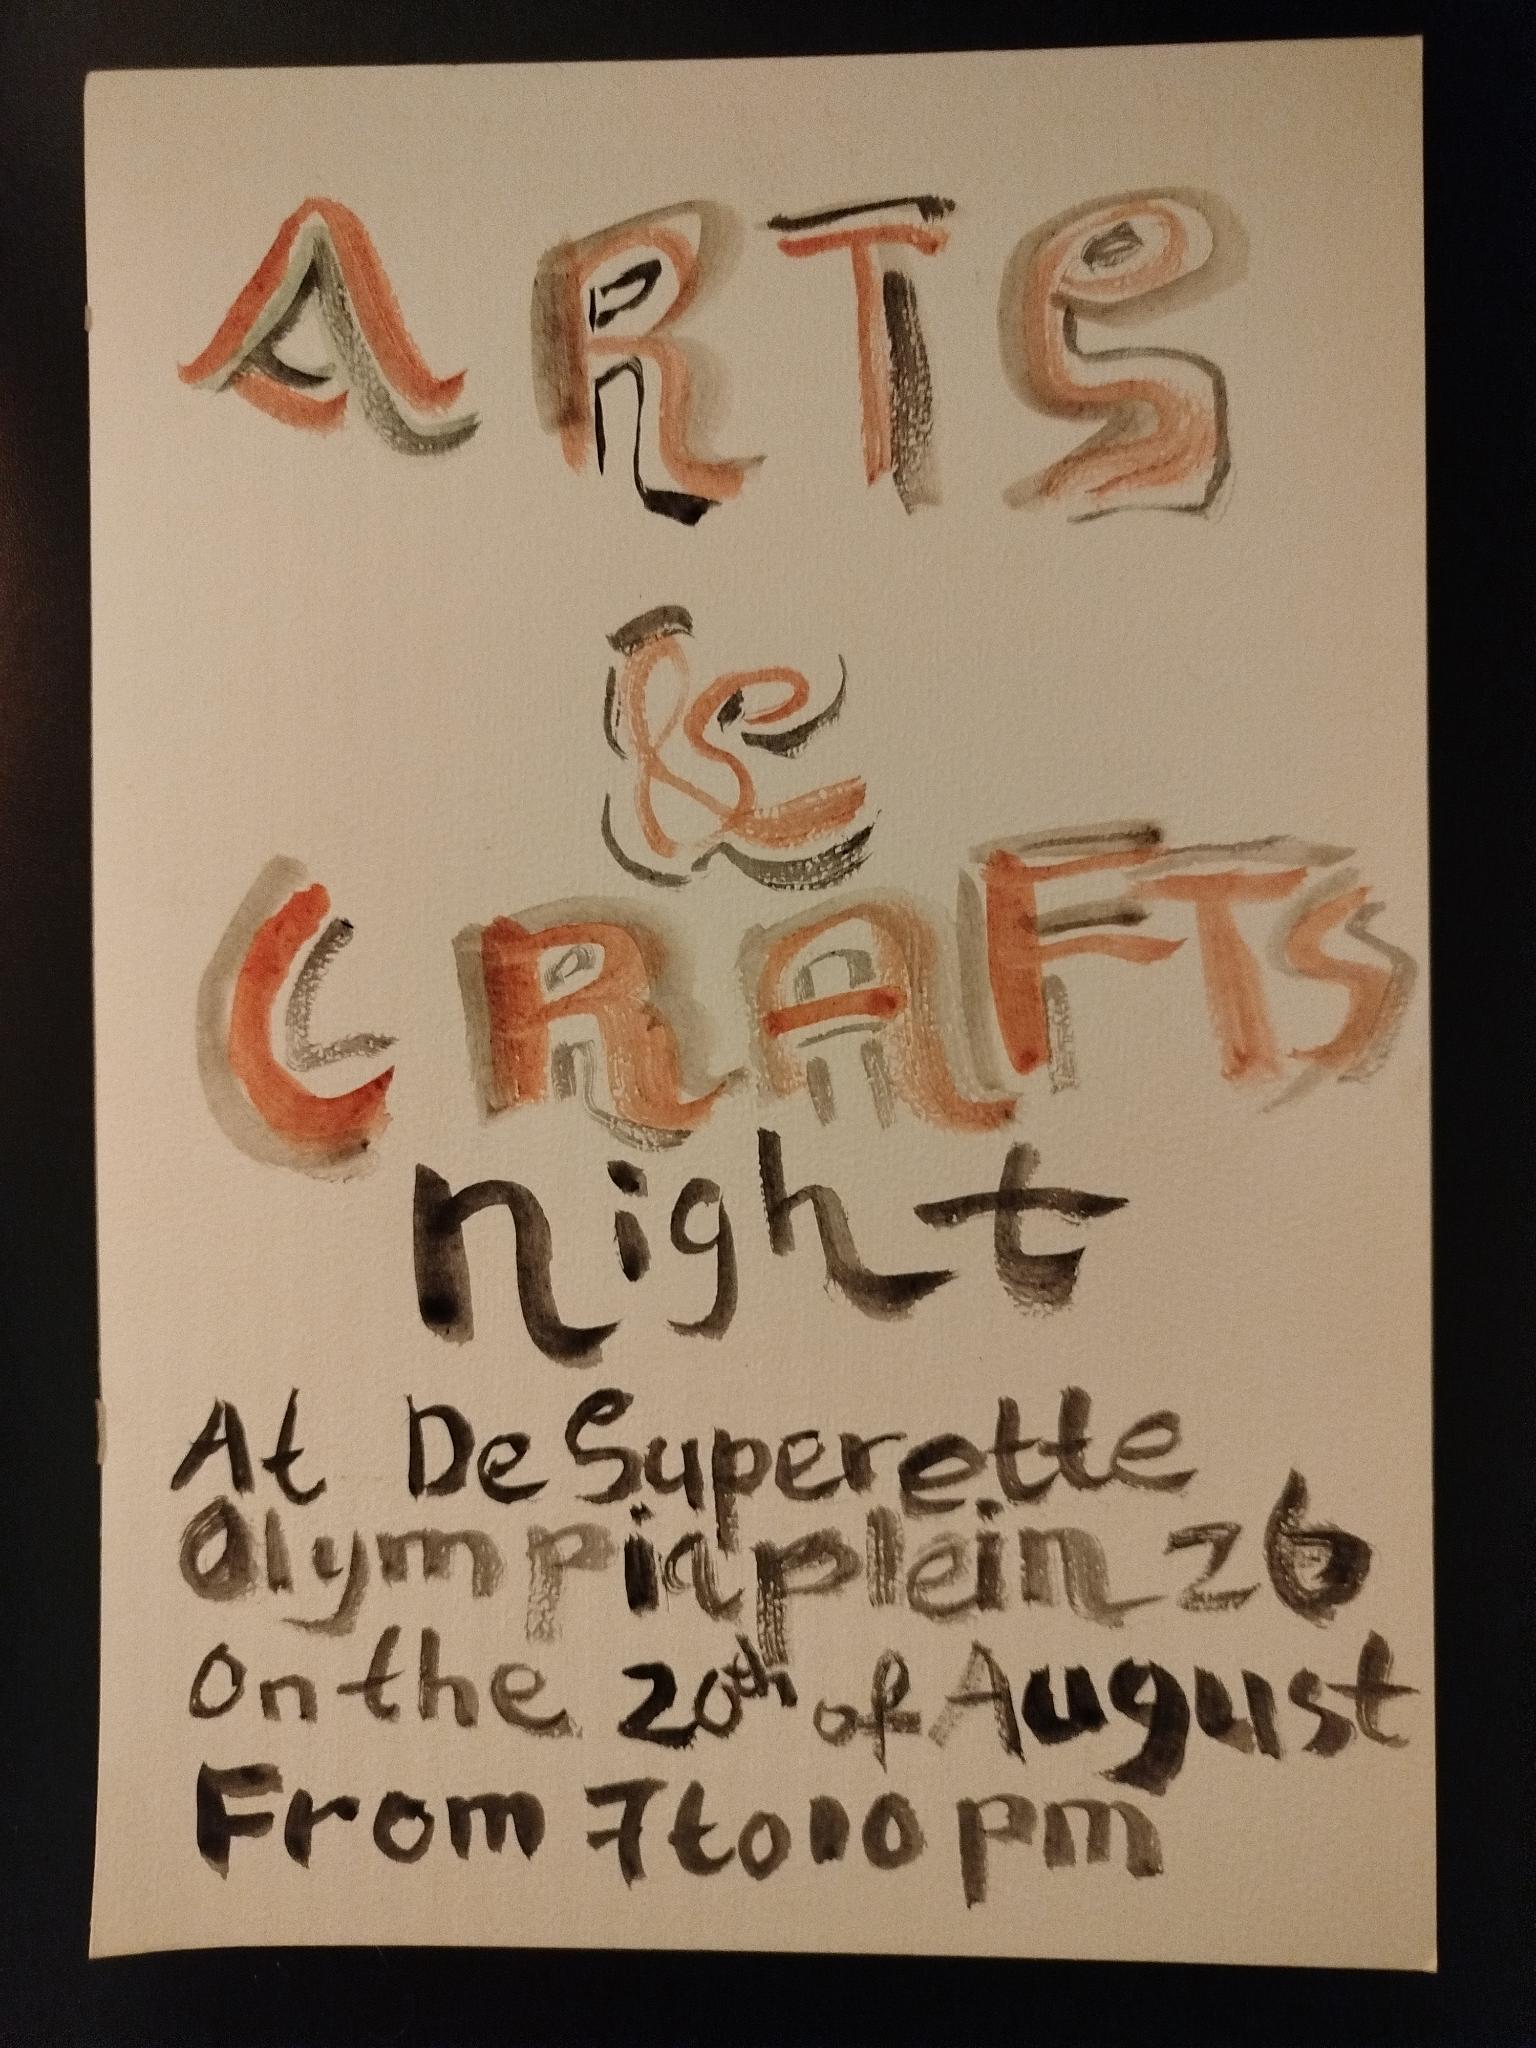 ARTS
&
CRAFTS
night
At De Superette
Olympiaplein 26
On the 20th of August
From 7 to 10 pm